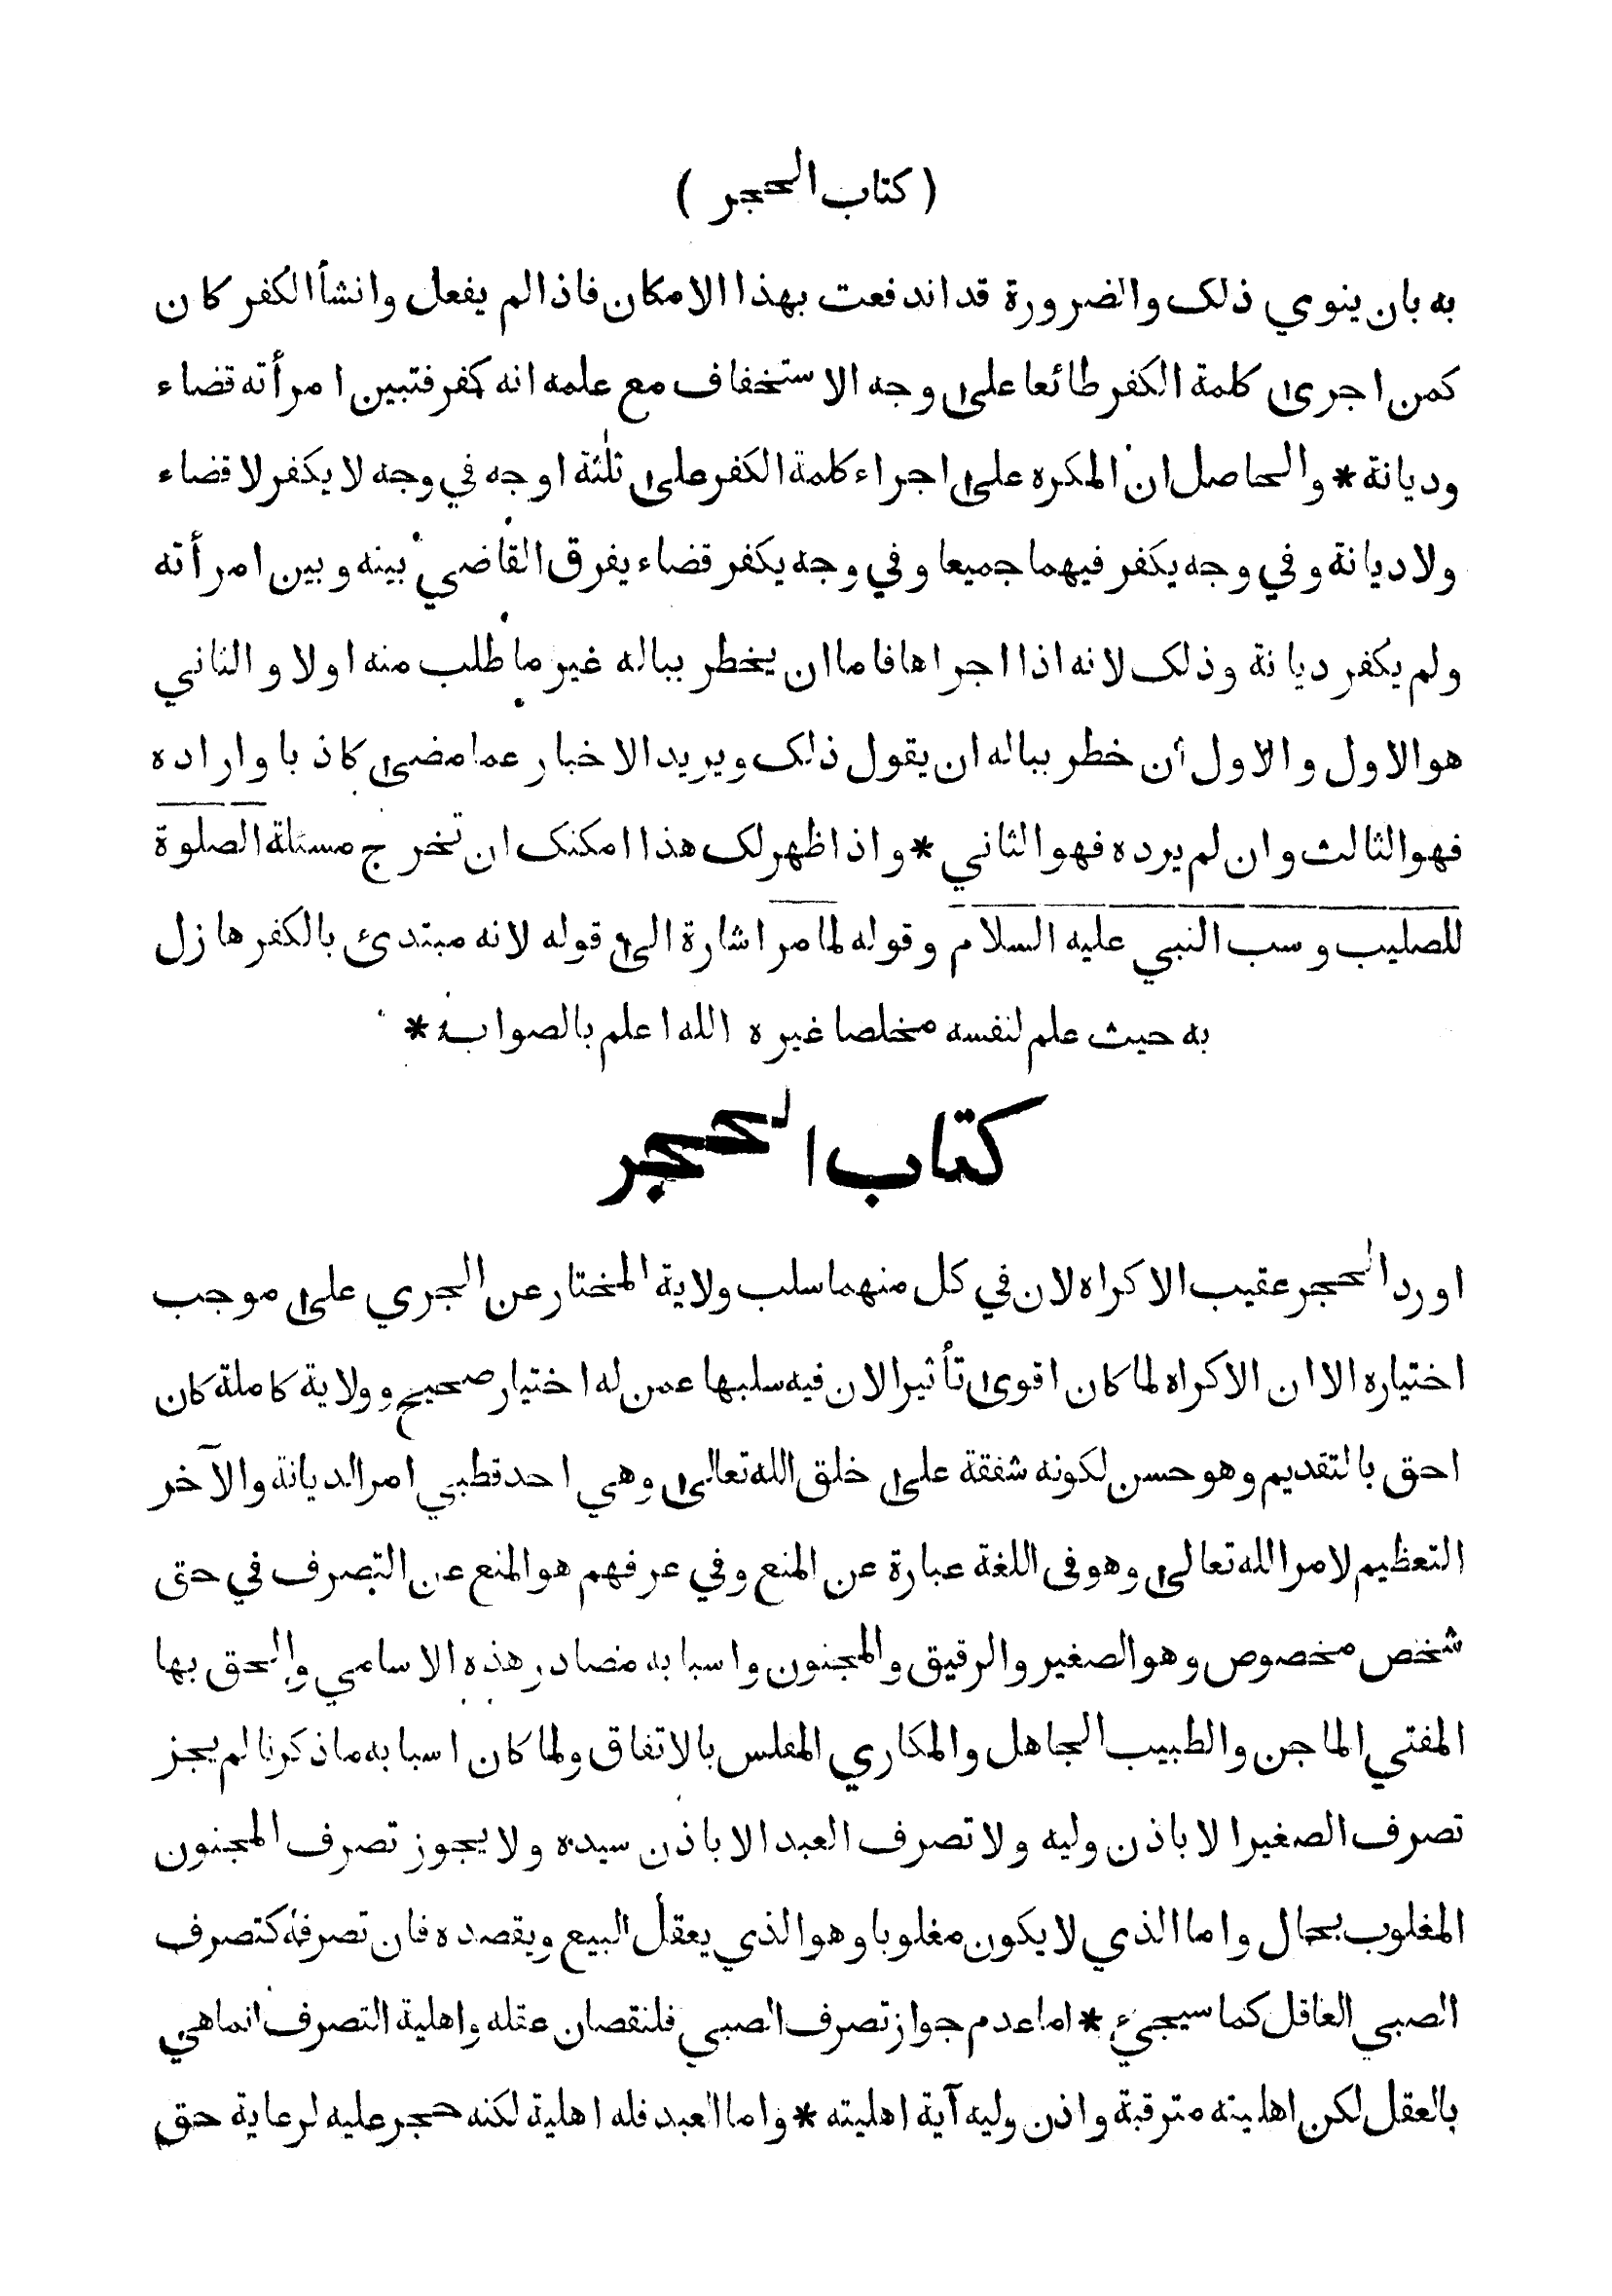 ( كتاب الحجر )
به بان ينوي ذلک والضرورة قد اندفعت بهذا الامكان فاذا لم يفعل وانشأ الكفر كان
كمن اجرى كلمة الكفر طائعا على وجه الاستخفاف مع علمه انه كفر فتبين امرأته قضاء
وديانة * والحاصل ان المكره على اجراء كلمة الكفر على ثلثة اوجه في وجه لا يكفر لا قضاء
ولا ديانة وفي وجه يكفر فيهما جميعا وفي وجه يكفر قضاء يفرق القاضي بينه وبين امرأته
ولم يكفر ديانة وذلک لانه اذا اجراها فاما ان يخطر بباله غير ما طلب منه اولا والثاني
هو الاول والاول أن خطر بباله ان يقول ذلک ويريد الاخبار عما مضى كاذبا واراده
فهو الثالث وان لم يرده فهو الثاني * واذا ظهر لک هذا امكنک ان تخرج مسئلة الصلوة
للصليب وسب النبي عليه السلام وقوله لما مر اشارة الى قوله لانه مبتدئ بالكفر هازل
به حيث علم لنفسه مخلصا غيره الله اعلم بالصواب *
كتاب الحجر
اورد الحجر عقيب الاكراه لان في كل منهما سلب ولاية المختار عن الجري على موجب
اختياره الا ان الاكراه لما كان اقوى تأثيرا لان فيه سلبها عمن له اختيار صحيح وولاية كاملة كان
احق بالتقديم وهو حسن لكونه شفقة على خلق الله تعالى وهي احد قطبي امر الديانة والآخر
التعظيم لامر الله تعالى وهو فى اللغة عبارة عن المنع وفي عرفهم هو المنع عن التصرف في حق
شخص مخصوص وهو الصغير والرقيق والمجنون واسبابه مصادر هذه الاسامي والحق بها
المفتي الماجن والطبيب الجاهل والمكاري المفلس بالاتفاق ولما كان اسبابه ما ذكرنا لم يجز
تصرف الصغير الا باذن وليه ولا تصرف العبد الا باذن سيده ولا يجوز تصرف المجنون
المغلوب بحال واما الذي لا يكون مغلوبا وهو الذي يعقل البيع ويقصده فان تصرفه كتصرف
الصبي العاقل كما سيجيء * اما عدم جواز تصرف الصبي فلنقصان عقله واهلية التصرف انما هي
بالعقل لكن اهليته مترقبة واذن وليه آية اهليته * واما العبد فله اهلية لكنه حجر عليه لرعاية حق